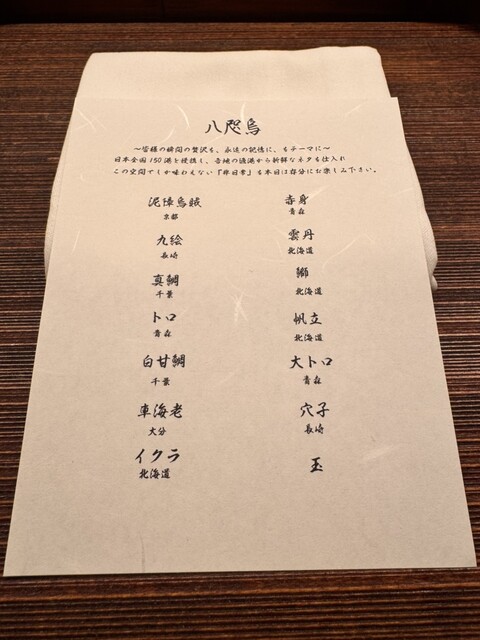 八咫烏
〜皆様の瞬間の贅沢を、永遠の記憶に、をテーマに〜
日本全国150港と提携し、各地の漁港から新鮮なネタを仕入れ
この空間でしか味わえない『非日常』を本日は存分にお楽しみ下さい。
泥障烏賊
京都
九絵
長崎
真鯛
千葉
トロ
青森
白甘鯛
千葉
車海老
大分
イクラ
北海道
赤身
青森
雲丹
北海道
鰤
北海道
帆立
北海道
大トロ
青森
穴子
長崎
玉